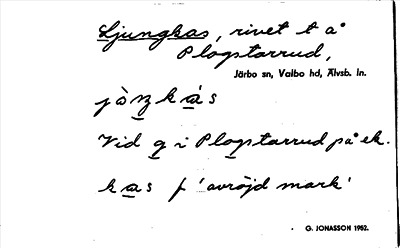 Ljungkas, rivet t å
Plogstorrud,
Järbo sn, Valbo hd, Älvsb. ln.
Vid g i Plogstorrud på ek.
kas f 'avröjd mark'
G. JONASSON 1952.